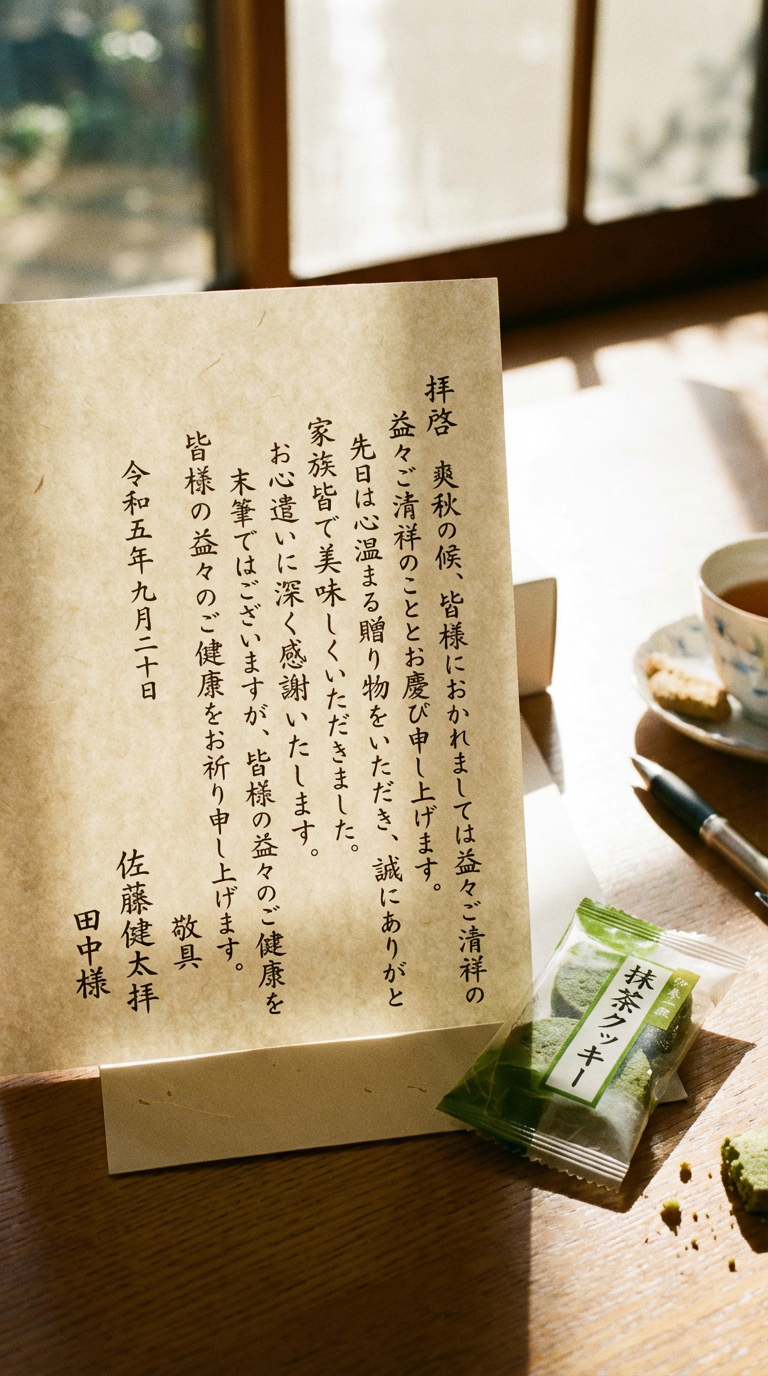 拝啓　爽秋の候、皆様におかれましては益々ご清祥の
益々ご清祥のこととお慶び申し上げます。
先日は心温まる贈り物をいただき、誠にありがと
家族皆で美味しくいただきました。
お心遣いに深く感謝いたします。
末筆ではございますが、皆様の益々のご健康を
皆様の益々のご健康をお祈り申し上げます。
敬具
令和五年九月二十日
佐藤健太拝
田中様
抹茶クッキー